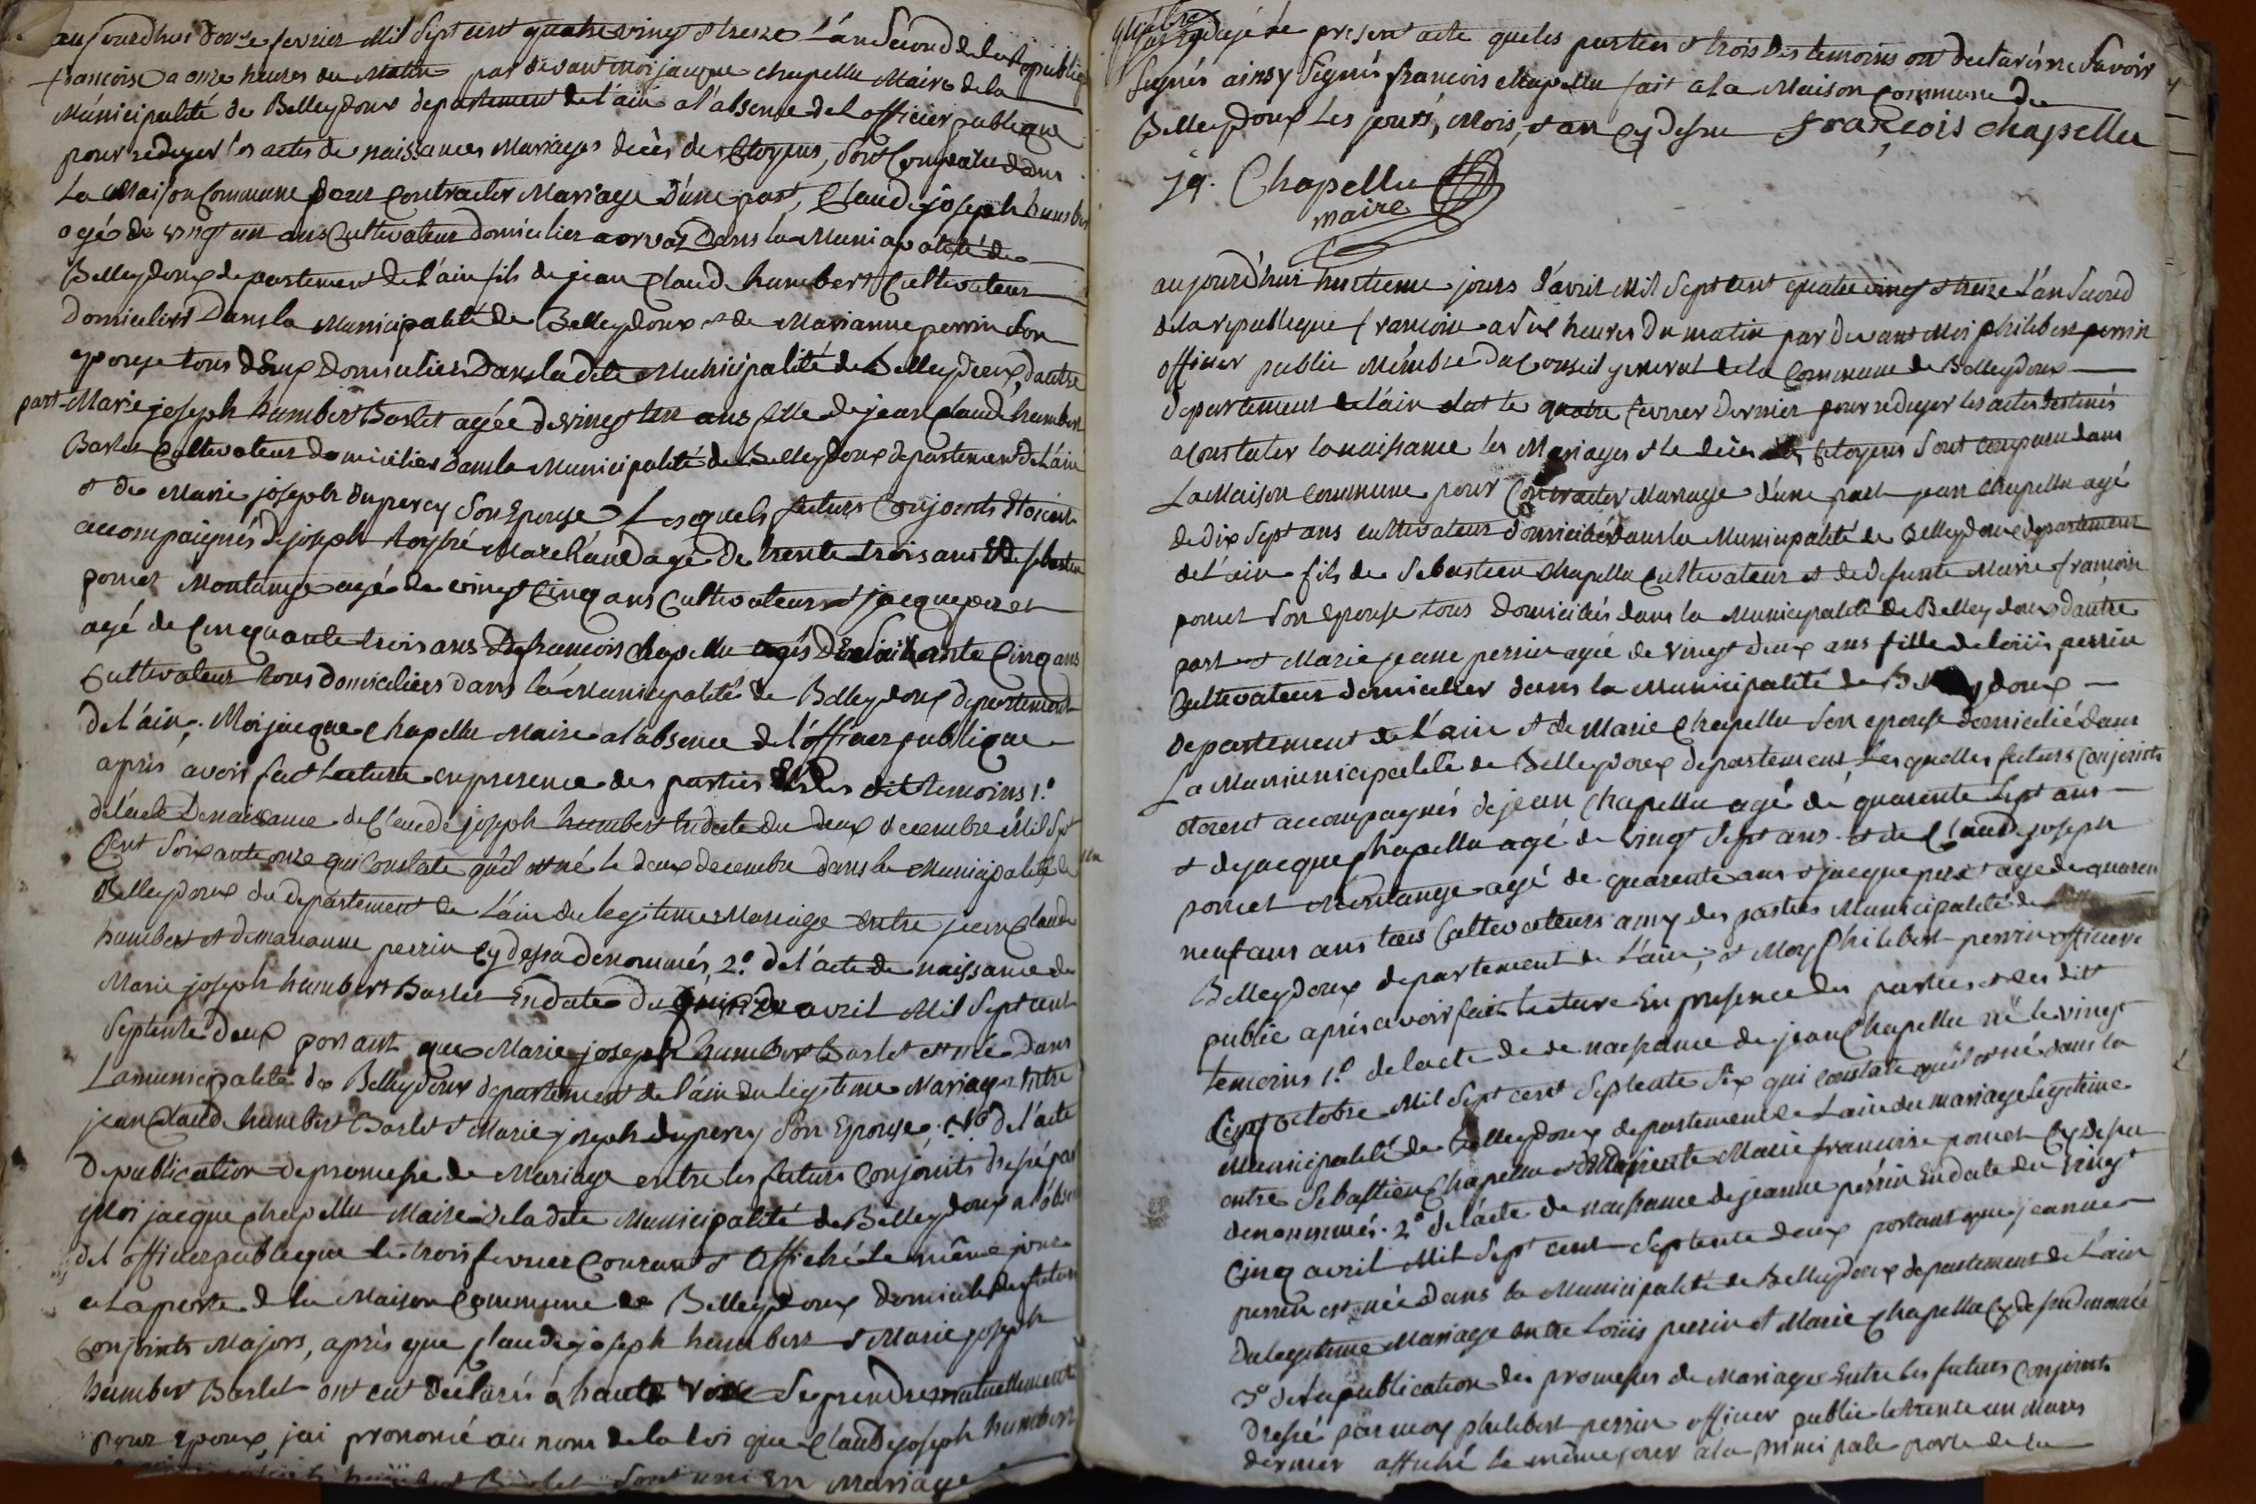 aujourdhui donze fevrier Mil Sept cent quatre vingt et treize L'an Second de la Republique
francoise a onze heures du Matin par devant moi jacque chapellu Maire de la
Municipalité de Belleydoux departement de l'ain a l'absence de l officier publique
pour rediger les actes de naissances Mariages decès des Citoyens, sont Comparu dans
La Maison Commune pour Contracter Mariage d'une part, Claude joseph humbert
agé de vingt un ans Cultivateur domicilier a orvaz Dans la Municipalité de
Belleydoux departement de L'ain fils de jean Claude humbert Cultivateur
Domicilier Dans la Municipalité de Belleydoux et de Marianne perrin Son
epouse tous deux Domicilier Dans la dite Municipalité de Belleydoux, d'autre
part Marie joseph humbert Barlet agée de vingt un ans fille de jean Claude humbert
Barlet Cultivateur domicilier Dans la Municipalité de Belleydoux departement de L'ain
et de Marie joseph dupercy Son Epouse Lesquels futurs Conjoints Etoient
accompaignés de joseph Marchand agé de trente trois ans Et de sebastien
poncet Montange agé de vingt Cinq ans Cultivateurs et jacque peret
agé de Cinquante trois ans Et francois chapellu agés De Soixante Cinq ans
Cultivateur tous domiciliers dans la Municipalité de Belleydoux departement
de L'ain. Moi jacque chapellu Maire a l'absence de l'officier publique
après avoir fait Lecture en presence des parties Et des dit temoins 1.º
de l'acte De naissance de Claude joseph humbert En date du deux decembre Mil Sept
Cent Soixante onze qui Constate qu'il est né le deux decembre dans la Municipalité de
Belleydoux du departement de L'ain du legitime Mariage entre jean Claude
humbert et de marianne perrin Cy dessu denommés, 2.º de l'acte de naissance de
Marie joseph humbert Barlet En date du quinze avril Mil Sept cent
Septente deux portant que Marie joseph humbert Barlet est née Dans
La municipalité de Belleydoux departement de l'ain du legitime Mariage Entre
jean Claude humbert Barlet et Marie joseph dupercy Son Epouse. 3º de l'acte
De publication de promesse de Mariage entre les futurs Conjoints dressé par
Moi jacque chapellu Maire de la dite Municipalité de Belleydoux a l'absence
del officier publique le trois fevrier Courant et Affiché Le même jour
a La porte de la Maison Commune de Belleydoux domicile des futurs
Conjoints Majors, après que Claude joseph humbert et Marie joseph
humbert Barlet ont eut declarés a haute voix Se prendre mutuellement
pour Epoux, jai prononcé au nom de la loi que Claude joseph humbert
humbert Barlet Sont uni En Mariage
redigé le present acte que les parties et trois des temoins ont declarés ne Savoir
Signés ainsy Signés francois chapellu fait a La Maison Commune de
Belleydoux Les jours, Mois, et an Cy dessu françois chapellu
jq. Chapellu
maire
aujourd'hui huitieme jours d'avril Mil Sept cent quatre vingt et treize L'an Second
de la republique francoise a Six heures du matin par devant Moi philibert perrin
officier public Membre du Conseil general de la Commune de Belleydoux
departement de l'ain elut le quatre fevrier Dernier pour rediger les actes destinés
a Constater la naissance les Mariages et le décès des Citoyens Sont comparu dans
La Maison Commune pour Contracter Mariage d'une part jean chapellu agé
de dix Sept ans cultivateur domicilié dans la Municipalité de Belleydoux departement
de L'ain fils de Sebastien chapellu Cultivateur et de defunte Marie francoise
poncet Son Epouse tous Domiciliés dans la Municipalité de Belleydoux d'autre
part et Marie jeane perrin agée de vingt deux ans fille de loüis perrin
Cultivateur domicilier dans la Municipalité de Belleydoux
Departement de L'ain et de Marie chapellu Son epouse domicilié dans
La Munimunicipalité de Belleydoux departement, Lesquelles futurs Conjoints
etoient accompagnés de jean chapellu agé de quarente Sept ans
et de jacque chapellu agé de vingt Sept ans et de Claude joseph
poncet Montange agé de quarente ans et jacque peret agé de quaren
neuf ans ans tous Cultivateurs amy des parties Municipalité de
Belleydoux departement de L'ain, et Moy Philibert perrin officier
public après avoir fait Lecture En presence des parties et des dit
temoins 1.º de l acte de de naissance de jean Chapellu né le vingt
Cinq octobre Mil Sept cent Septente Six qui constate qu'il est né dans la
Municipalité de Belleydoux departement de L'ain du mariage Legitime
entre Sebastien Chapellu et Marie francoise poncet Cy dessu
denommés. 2º de l'acte de naissance de jeanne perrin En date du vingt
Cinq avril Mil Sept cent Septente deux portant que jeanne
perrin est née dans la Municipalité de Belleydoux departement de L'ain
Du legitime Mariage entre Loüis perrin et Marie Chapellu Cy dessu denomé
3º de la publication des promesses de Mariage Entre les futurs Conjoints
Dressé par moy philibert perrin officier public le trente un Mars
dernier affiché le même jour a la principale porte de la